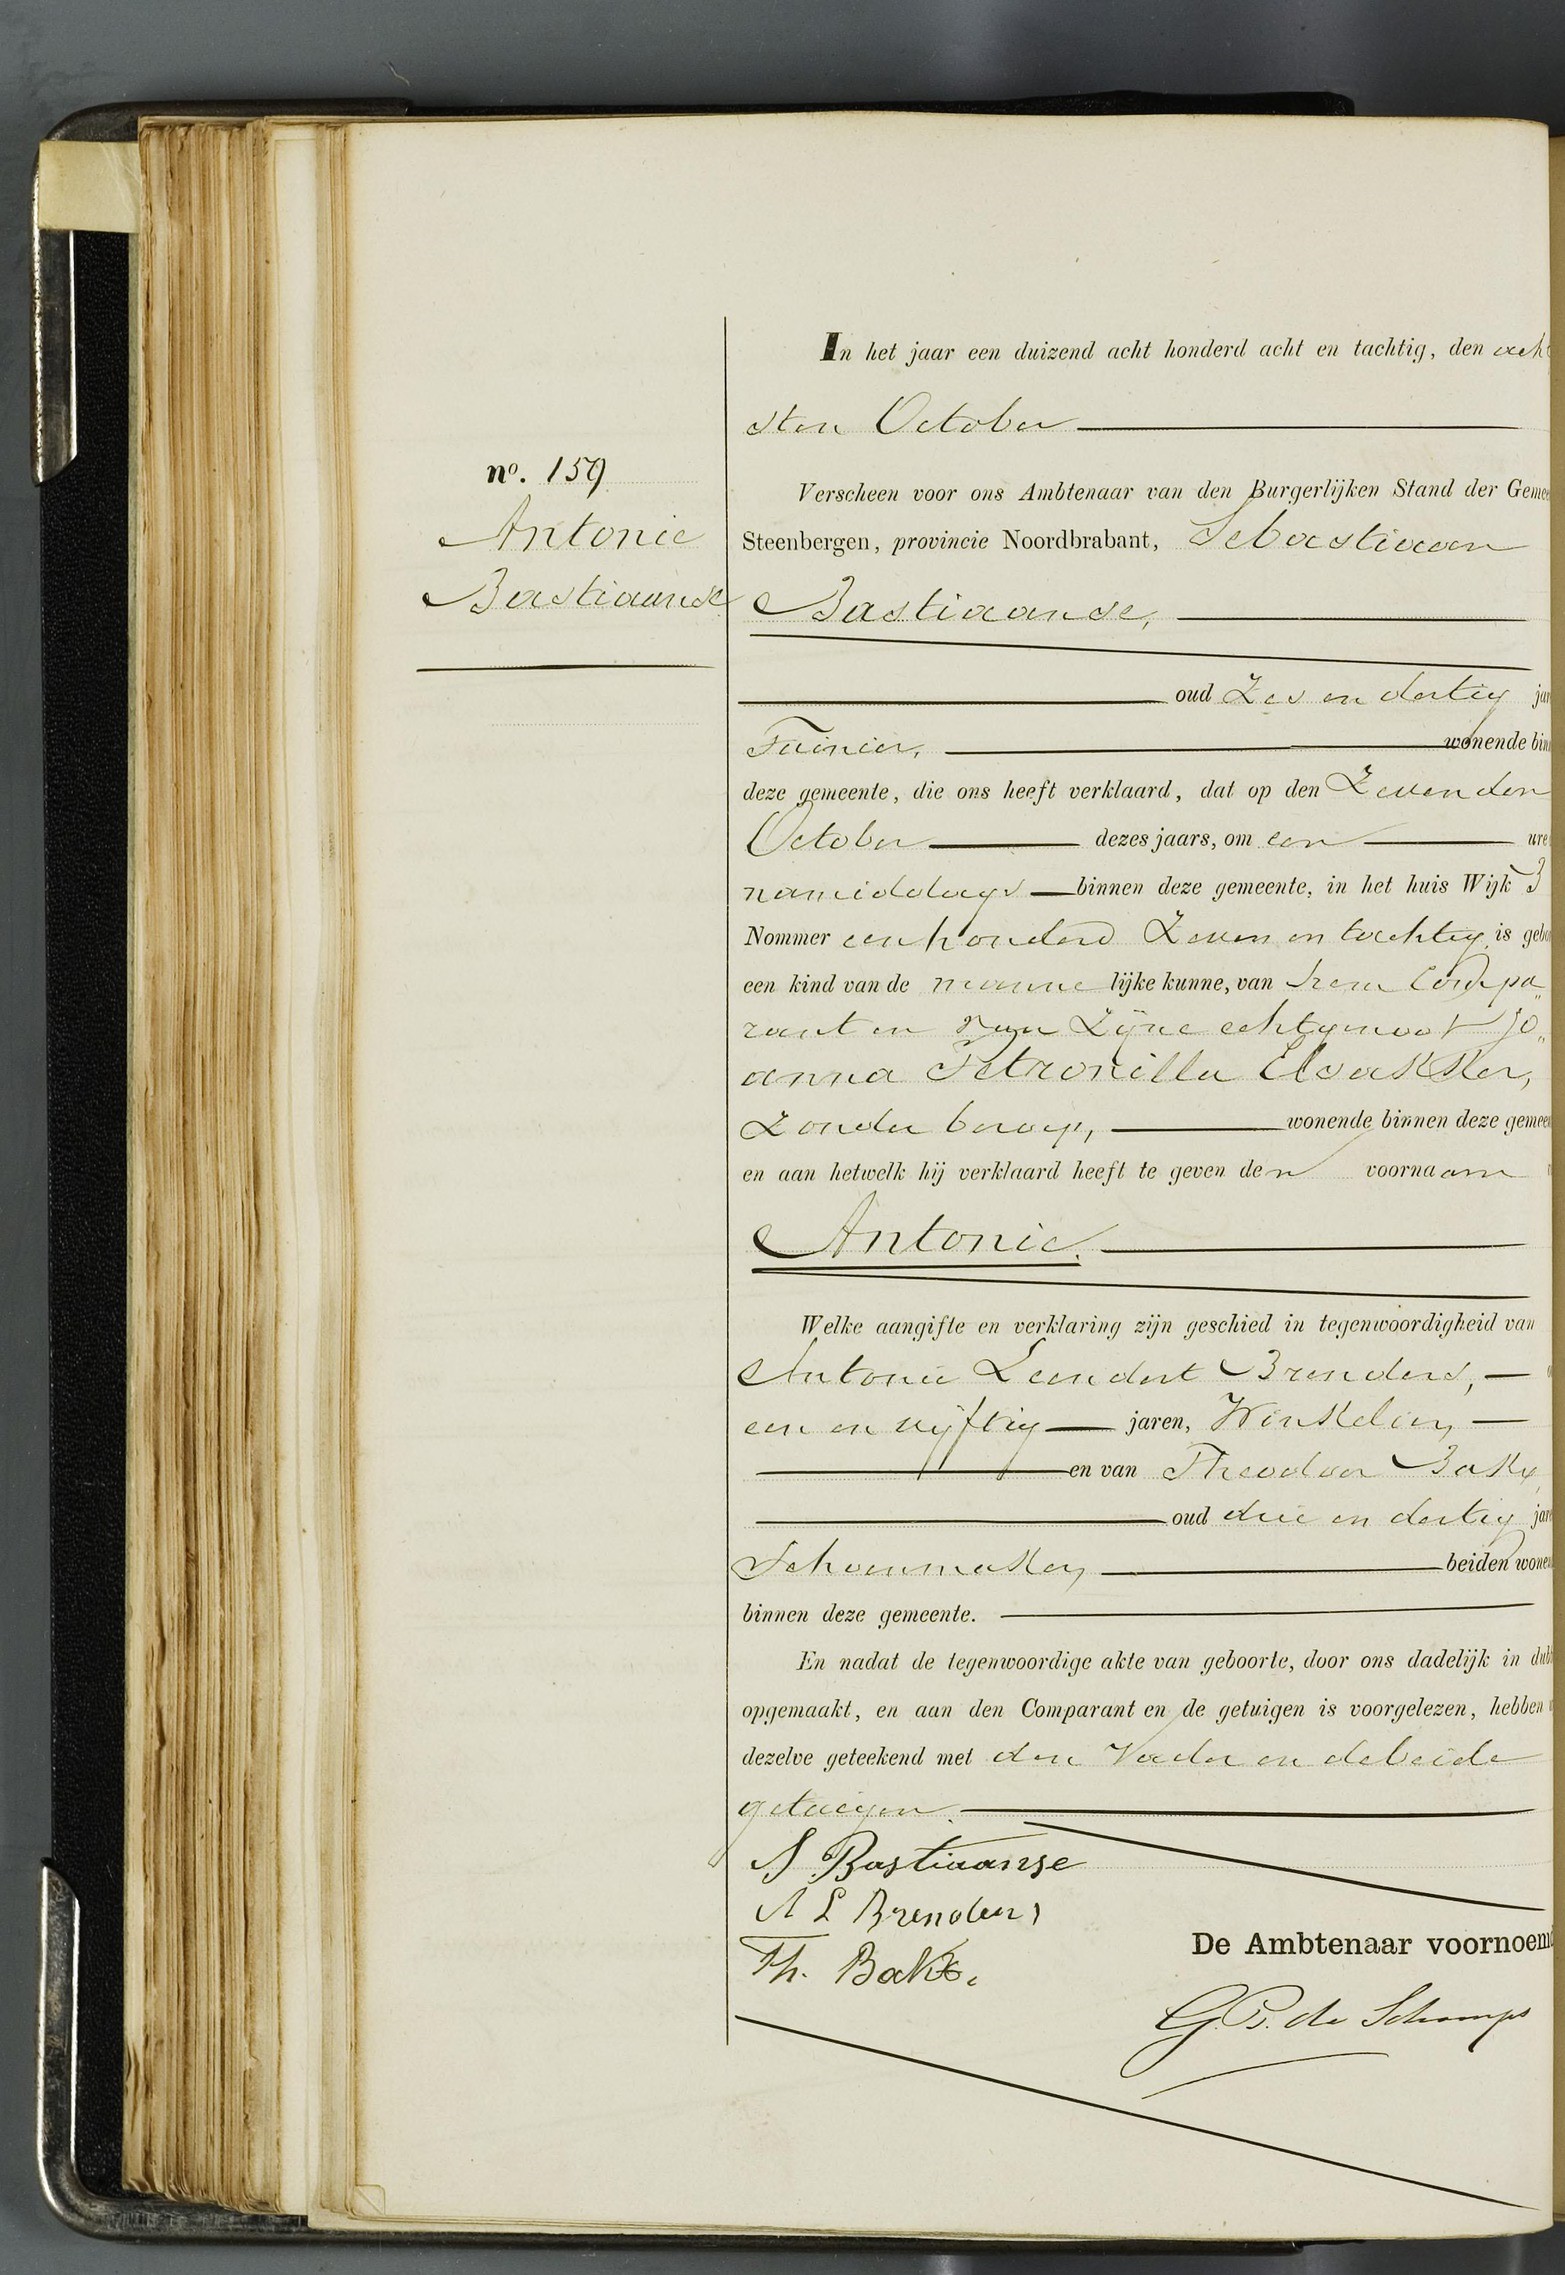 In het jaar een duizend acht honderd acht en tachtig, den acht
sten October
no. 159
Antonie
Bastiaanse
Verscheen voor ons Ambtenaar van den Burgerlijken Stand der Gemee
Steenbergen, provincie Noordbrabant, Sebastiaan
Bastiaanse,
oud Zes en dertig jar
Tuinier, wonende bin
deze gemeente, die ons heeft verklaard, dat op den Zevenden
October dezes jaars, om een ure
namiddags binnen deze gemeente, in het huis Wijk B
Nommer een honderd Zeven en tachtig is gebo
een kind van de manne lijke kunne, van hem Compa„
rant en van Zijne echtgenoot Jo„
anna Petronilla Elsakker,
Zonder beroep, wonende binnen deze gemeen
en aan hetwelk hij verklaard heeft te geven den voornaam
Antonie.
Welke aangifte en verklaring zijn geschied in tegenwoordigheid van
Antonie Leendert Brenders,
een en vijftig jaren, Winkelier,
en van Theodoor Bakx,
oud drie en dertig jare
Schoenmaker, beiden wonen
binnen deze gemeente.
En nadat de tegenwoordige akte van geboorte, door ons dadelijk in dub
opgemaakt, en aan den Comparant en de getuigen is voorgelezen, hebben
dezelve geteekend met den Vader en de beide
getuigen.
S Bastiaanse
A L Brenders
Th. Bakx.
De Ambtenaar voornoemd
de Schamps